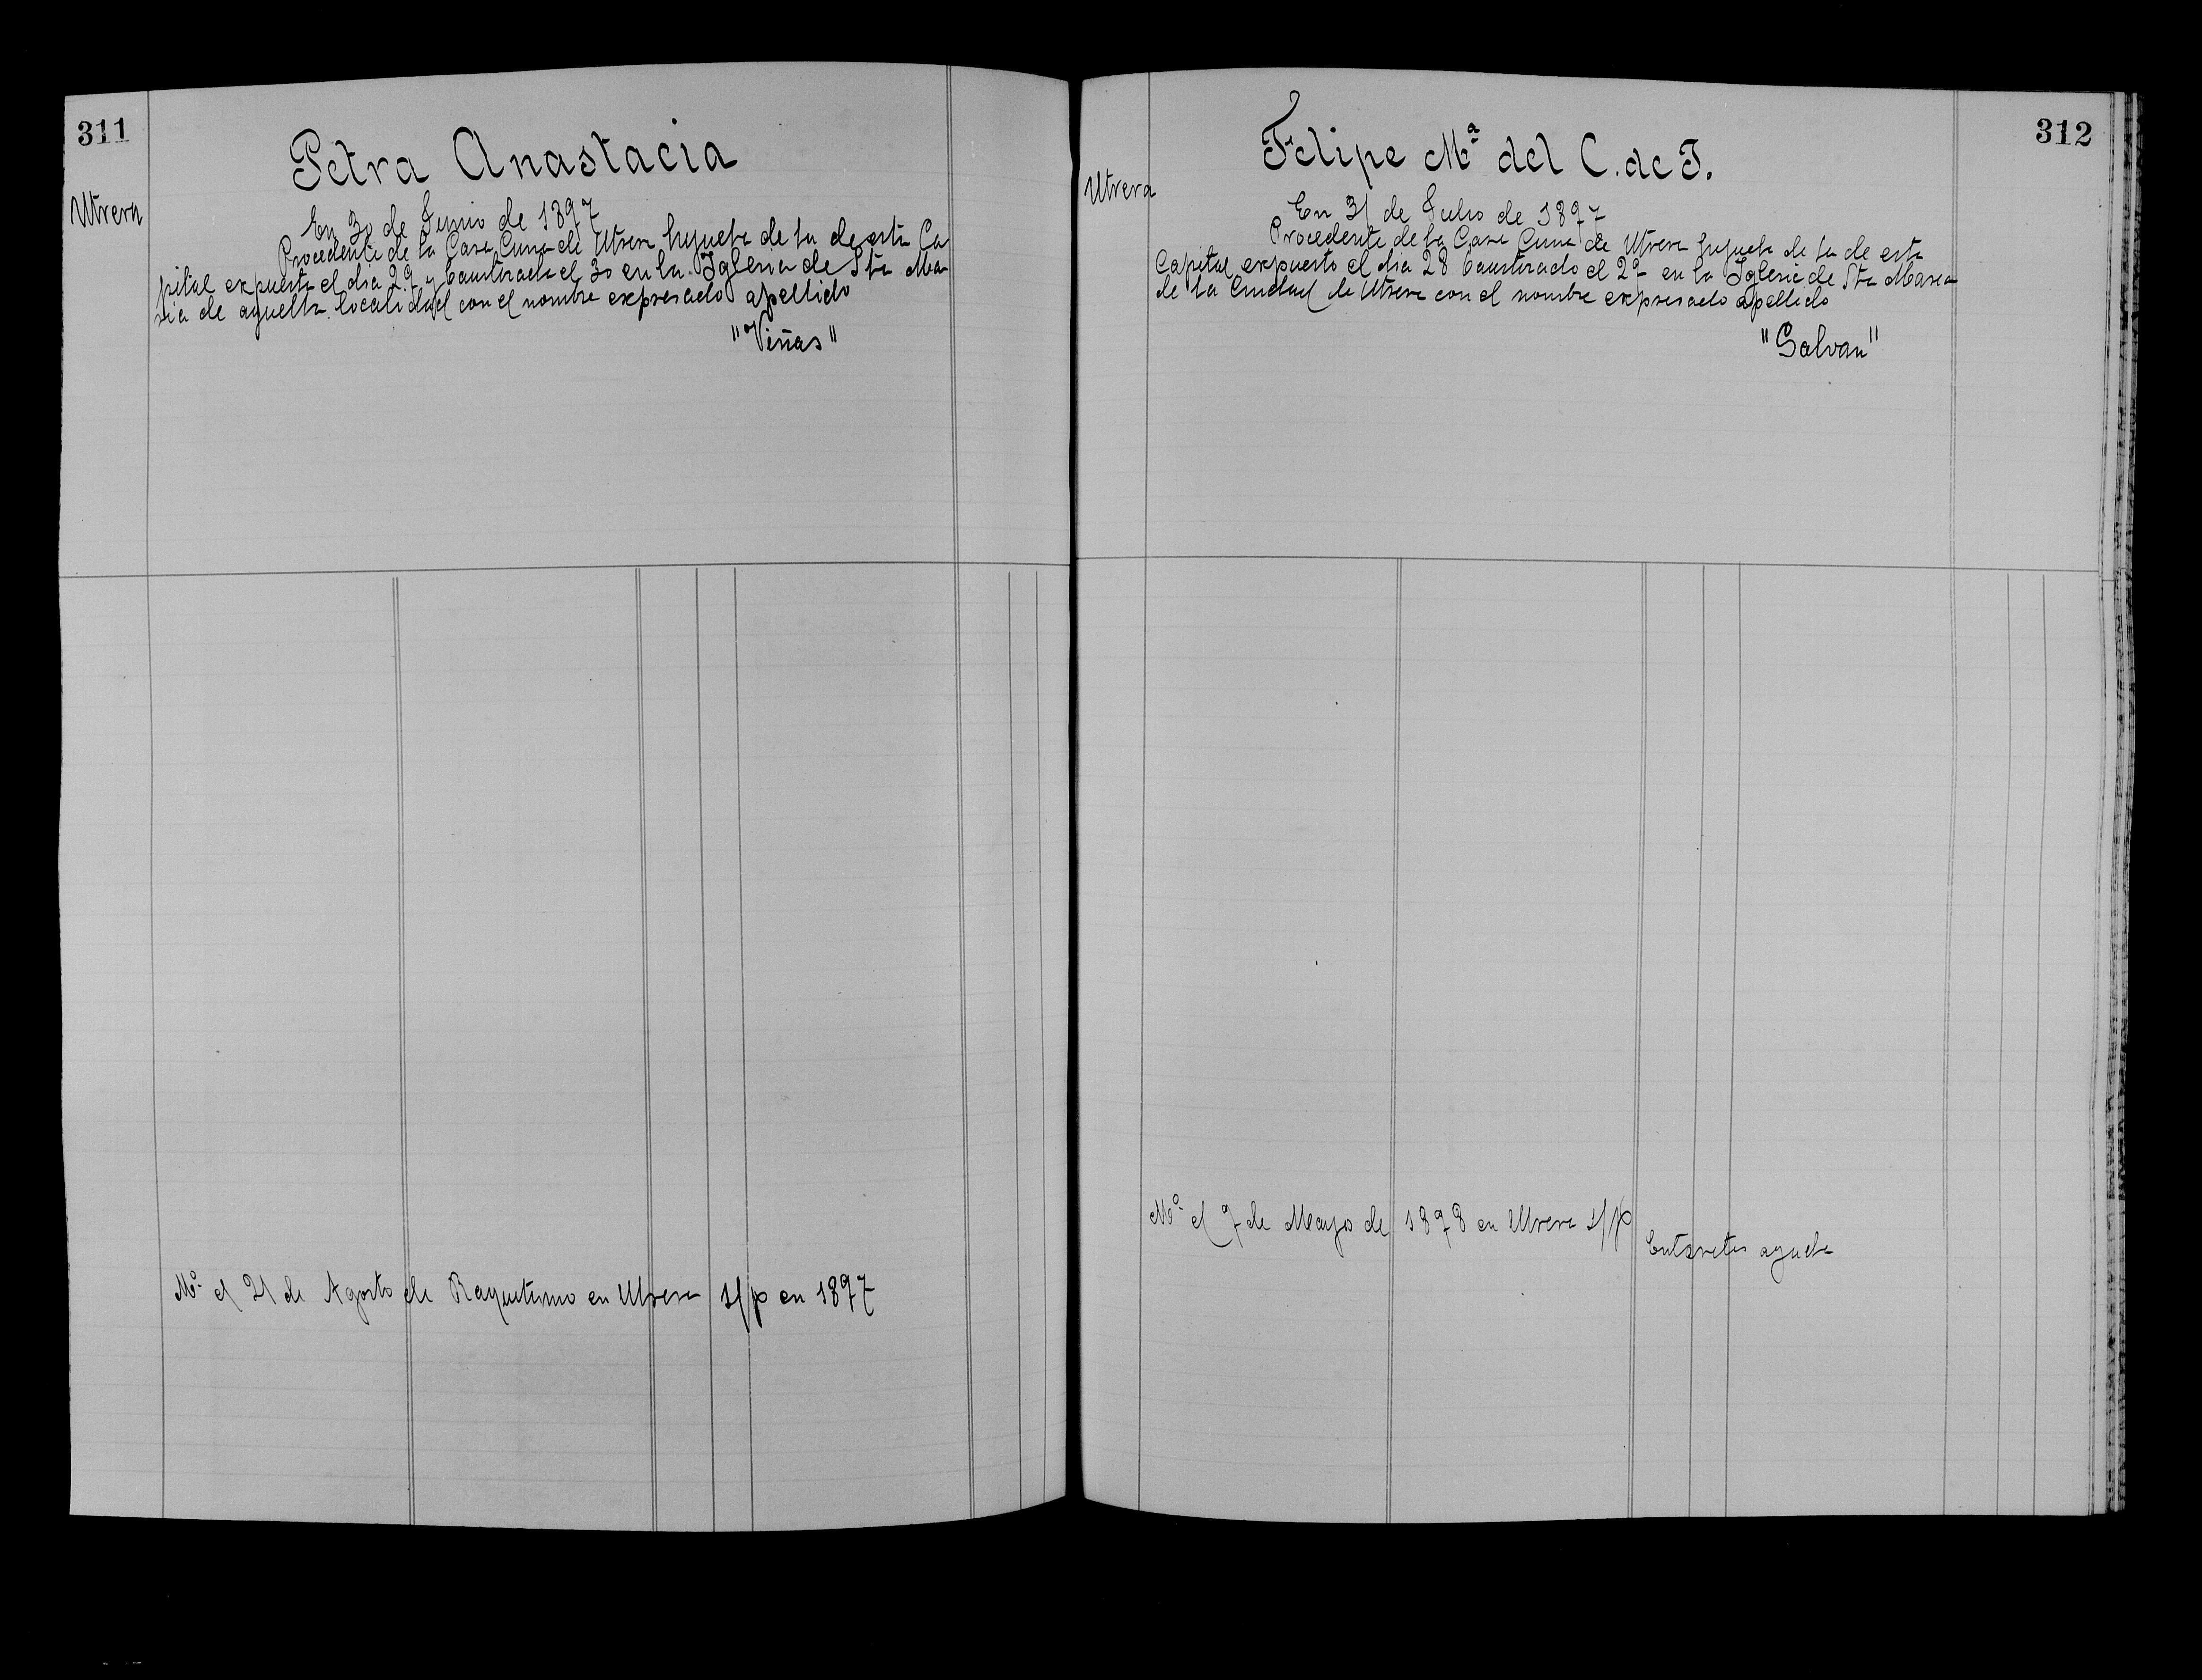 311
Utrera
Petra Anastacia
En 30 de Junio de 1897
Procedente de la Casa Cuna de Utrera hijuela de la de esta Ca
pital expuesta el dia 29 y bautizada el 30 en la Iglesia de Sta Ma
ria de aquella localidad con el nombre expresado apellido
"Viñas"
Mº el 21 de Agosto de Raquitismo en Utrera s/p en 1897
312
Utrera
Felipe Mª del C. de J.
En 31 de Julio de 1897
Procedente de la Casa Cuna de Utrera hijuela de la de esta
Capital expuesto el dia 28 bautizado el 29 en la Iglesia de Sta Maria
de la Ciudad de Utrera con el nombre expresado apellido
"Galvan"
Mº el 9 de Mayo de 1898 en Utrera s/p
aguda